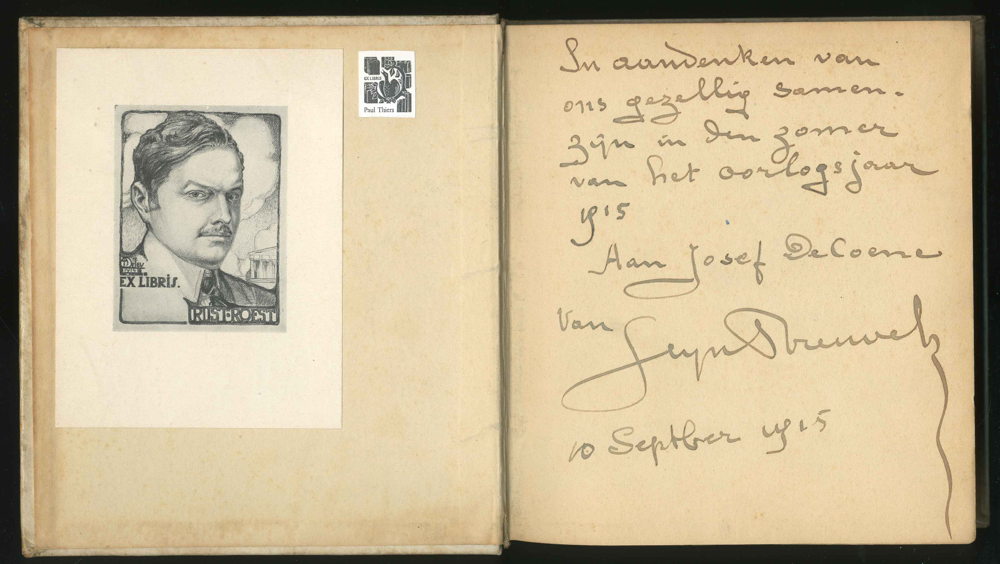 EX LIBRIS.
RUST-ROEST
EX LIBRIS
Paul Thiers
In aandenken van
ons gezellig samen-
zijn in den zomer
van het oorlogsjaar
1915
Aan Josef DeCoene
van
Stijn Streuvels
10 Septber 1915